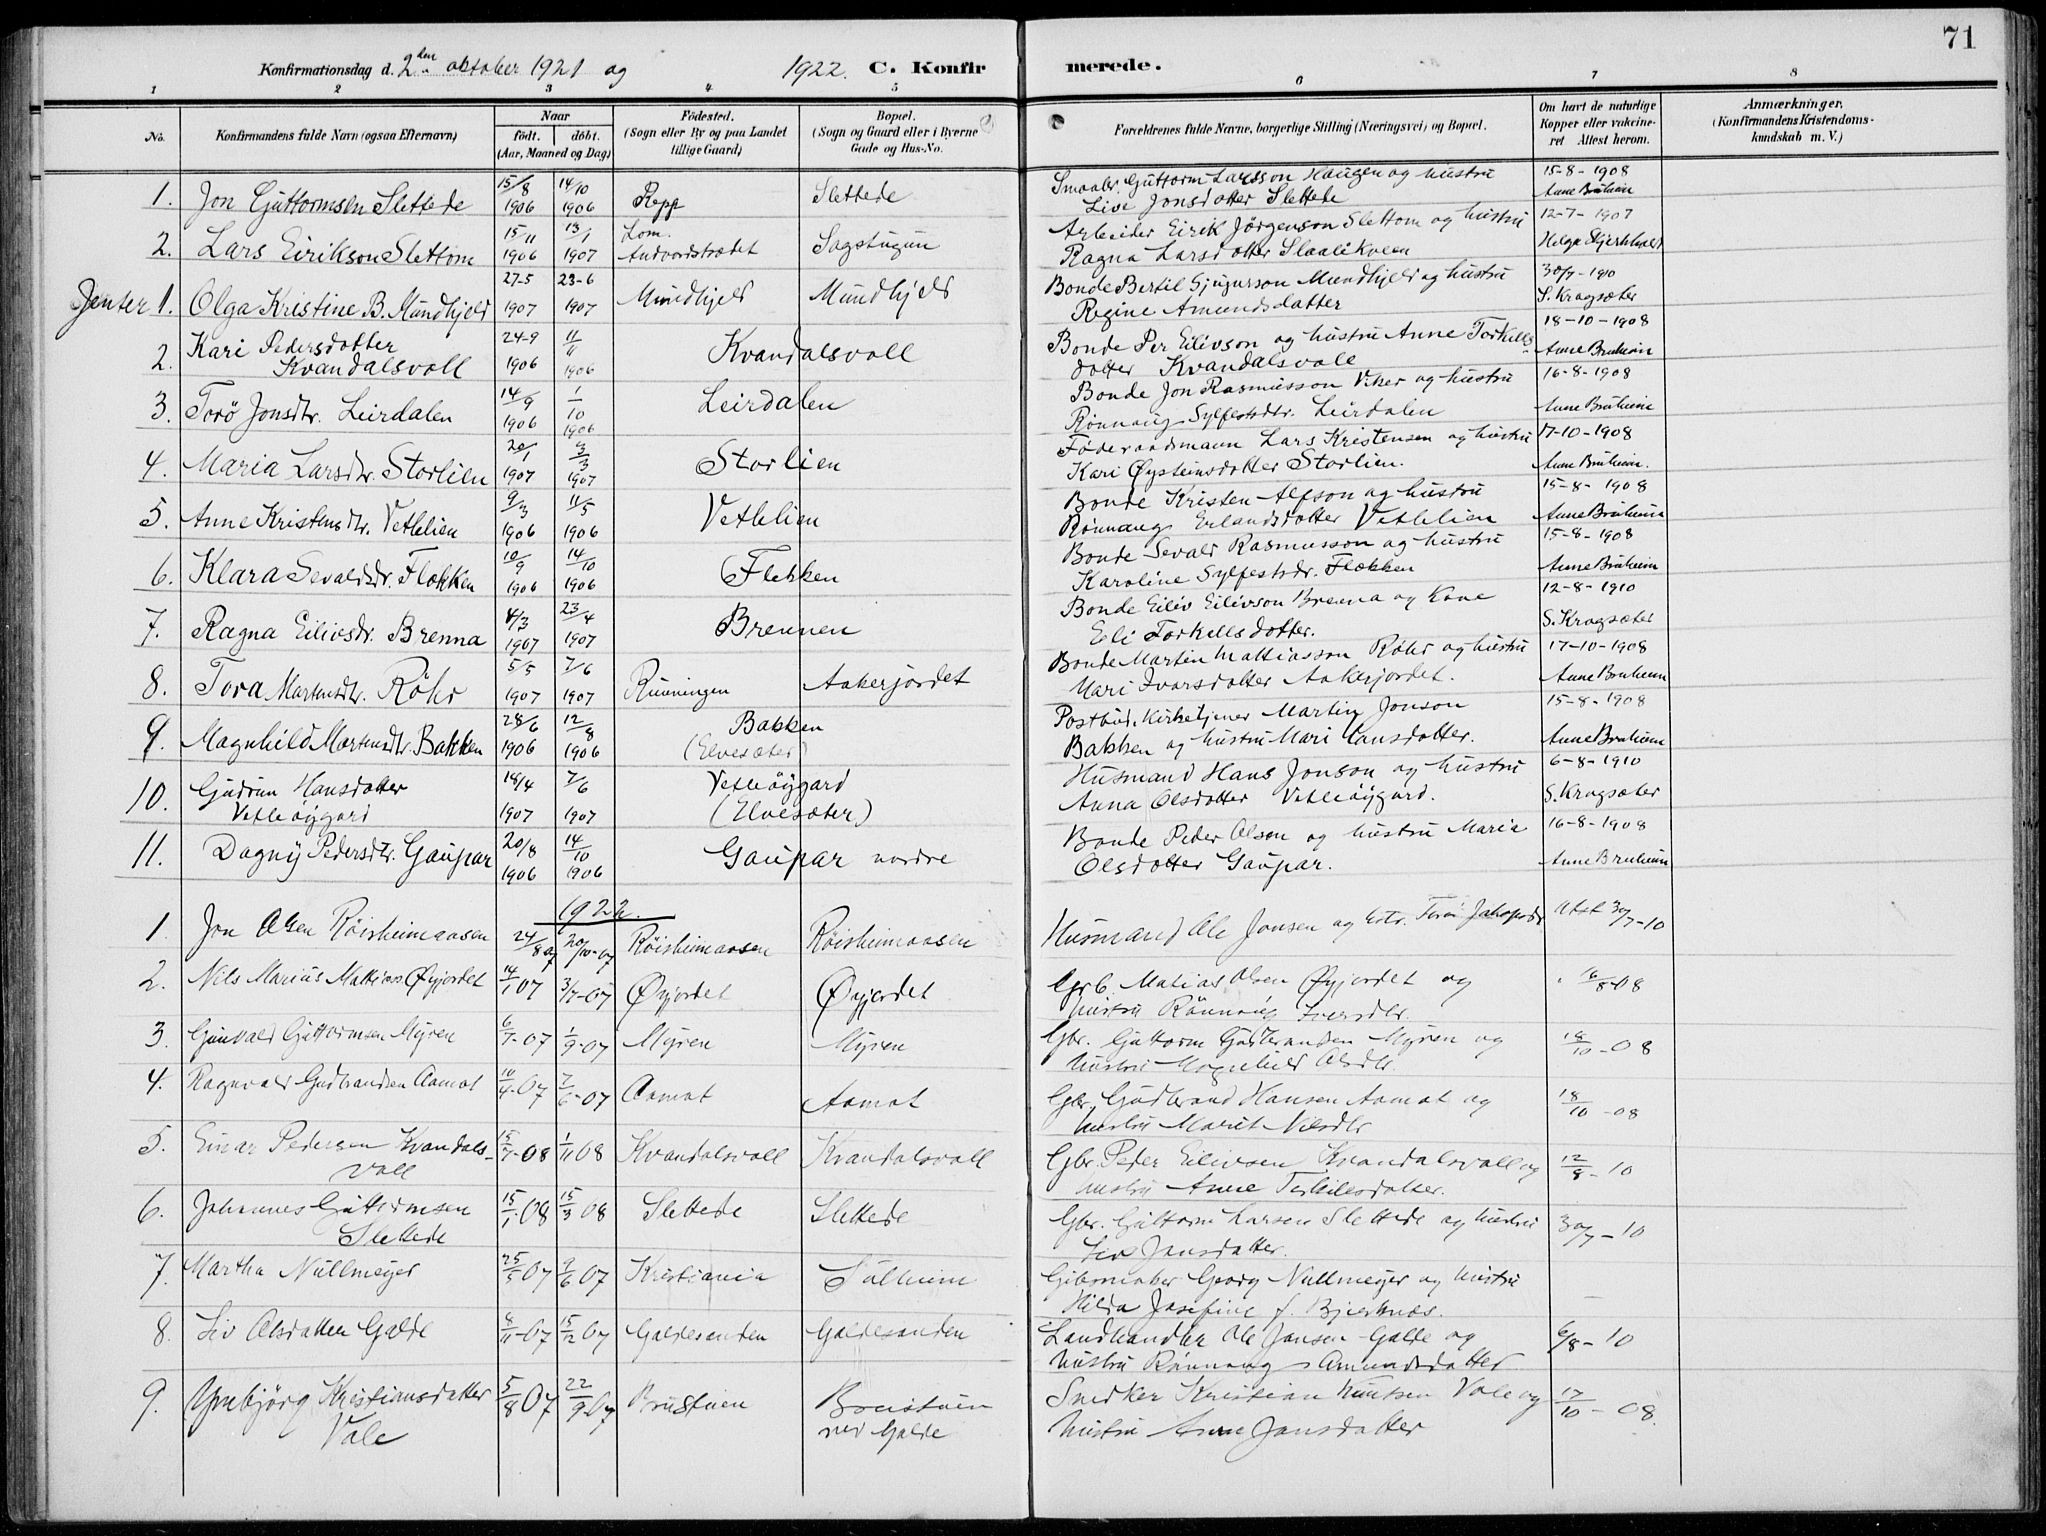 71
Konfirmationsdag d. 2den oktober 1921 og 1922. C. Konfirmerede.
1 2 3 4 5 6 7 8
No.
Konfirmandens fulde Navn (ogsaa Efternavn)
Naar
født. døbt.
(Aar, Maaned og Dag)
Fødested.
(Sogn eller By og paa Landet
tillige Gaard)
Bopæl.
(Sogn og Gaard eller i Byerne
Gade og Hus-No.
Forældrenes fulde Navne, borgerlige Stilling (Næringsvei) og Bopæl.
Om havt de naturlige
Kopper eller vakcine-
ret Attest herom.
Anmærkninger.
(Konfirmandens Kristendoms-
kundskab m. V.)
1. Jon Guttormsen Slettede 15/8 1906 14/10 1906 Repp Slettede Smaabr. Guttorm Larsson Haugen og hustru
Live Jonsdotter Slettede 15-8-1908 Anne Bruheim
2. Lars Eirikson Slettom 15/11 1906 13/1 1907 Lom. Andvordstrædet Sagstugun Arbeider Eirik Jørgenson Slettom og hustru
Ragna Larsdotter Slaalikveen 12-7-1907 Helga
Jenter 1. Olga Kristine B. Mundhjeld 27-5 1907 23-6 1907 Mundhjeld Mundhjeld Bonde Bertil Mundhjeld og hustru
Regine Amundsdatter 30/7-1910 S. Kragsæter
2. Kari Pedersdotter
Kvandalsvoll 24-9 1906 11/11 1906 Kvandalsvoll Bonde Per Eilivson og hustru Anne Torkells
dotter Kvandalsvoll 18-10-1908 Anne Bruheim
3. Torø Jonsdtr. Leirdalen 14/9 1906 1/10 1906 Leirdalen Bonde Jon Rasmusson Viker og hustru
Rønnaug Sylfestsdtr. Leirdalen 16-8-1908 Anne Bruheim
4. Maria Larsdtr. Storlien 20/1 1907 3/3 1907 Storlien Føderaadsmann Lars Kristensen og hustru
Kari Øysteinsdotter Storlien. 17-10-1908 Anne Bruheim.
5. Anne Kristensdtr. Vetlelien 9/3 1906 11/5 1906 Vetlelien Bonde Kristen Alfson og hustru
Rønnaug Erlandsdotter Vetlelien 15-8-1908 Anne Bruheim
6. Klara Sevaldsdr. Flekken 10/9 1906 14/10 1906 Flekken Bonde Sevald Rasmusson og hustru
Karoline Sylfestsdr. Flekken 15-8-1908 Anne Bruheim
7. Ragna Eilivsdr. Brenna 4/3 1907 23/4 1907 Brennen Bonde Eiliv Eilivson Brenna og Kone
Eli Torkellsdotter. 12-8-1910 S. Kragsæter
8. Tora Martinsdtr. Røhr 5/5 1907 7/6 1907 Runningen Aakerjordet Bonde Martin Mattiasson Røhr og hustru
Mari Ivarsdotter Aakerjordet. 17-10-1908 Anne Bruheim
9. Magnhild Martinsdtr. Bakken 28/6 1906 12/8 1906 Bakken
(Elvesæter) Postbud, Kirketjener Martin Jonson
Bakken og hustru Mari Hansdotter. 15-8-1908 Anne Bruheim
10. Gudrun Hansdotter
Vetleøygard 18/4 1907 7/6 1907 Vetleøygard
(Elvesæter) Husmand Hans Jonson og hustru
Anna Olsdotter Vetleøygard. 6-8-1910 S. Kragsæter
11. Dagny Pedersdtr. Gaupar 20/8 1906 14/10 1906 Gaupar nordre Bonde Peder Olsen og hustru Maria
Olsdotter Gaupar. 16-8-1908 Anne Bruheim
1922.
1. Jon Olsen Røisheimaasen 24/8 07 20/10-07 Røisheimaasen Røisheimaasen Husmand Ole Jonsen og hstr. Torø Jakopsdr Atst 30/7-10
2. Nils Marius Mattias Øyjordet 14/1 07 3/7-07 Øyjordet Øyjordet Grb. Matias Olsen Øyjordet og
hustru Rønnaug Iversdtr. " 16/8-08
3. Gunvald Guttormsen Myren 6/7-07 1/9-07 Myren Myren Gbr. Guttorm Gudbrandsen Myren og
hustru Magnhild Olsdtr. 18/10-08
4. Ragnvald Gudbrandsen Aamot 10/4-07 7/6-07 Aamot Aamot Gbr. Gudbrand Hansen Aamot og
hustru Marit Nilsdtr 18/10-08
5. Einar Pedersen Kvandals-
voll 15/7-08 1/11 08 Kvandalsvoll Kvandalsvoll Gbr. Peder Eilivsen Kvandalsvoll og
hustru Anne Torkilsdatter. 12/8-10
6. Johannes Guttormsen
Slettede 15/1 08 15/3 08 Slettede Slettede Gbr. Guttorm Larsen Slettede og hustru
Liv Jonsdatter. 30/7-10
7. Martha Nullmeyer 25/5 07 9/6 07 Kristiania Sulheim Gibsmaker Georg Nullmeyer og hustru
Hilda Josefine f. Bjerknæs. -
8. Liv Olsdatter Galde 8/11-07 15/12 07 Galdesanden Galdesanden Landhandler Ole Jonsen Galde og
hustru Rønnaug Amundsdatter 6/8-10
9. Ynbjørg Kristiansdatter
Vole 5/8 07 22/9-07 Brustuen Breistuen
ned Galde Snedker Kristian Knutsen Vole og
hustru Anne Jonsdatter 17/10-08.